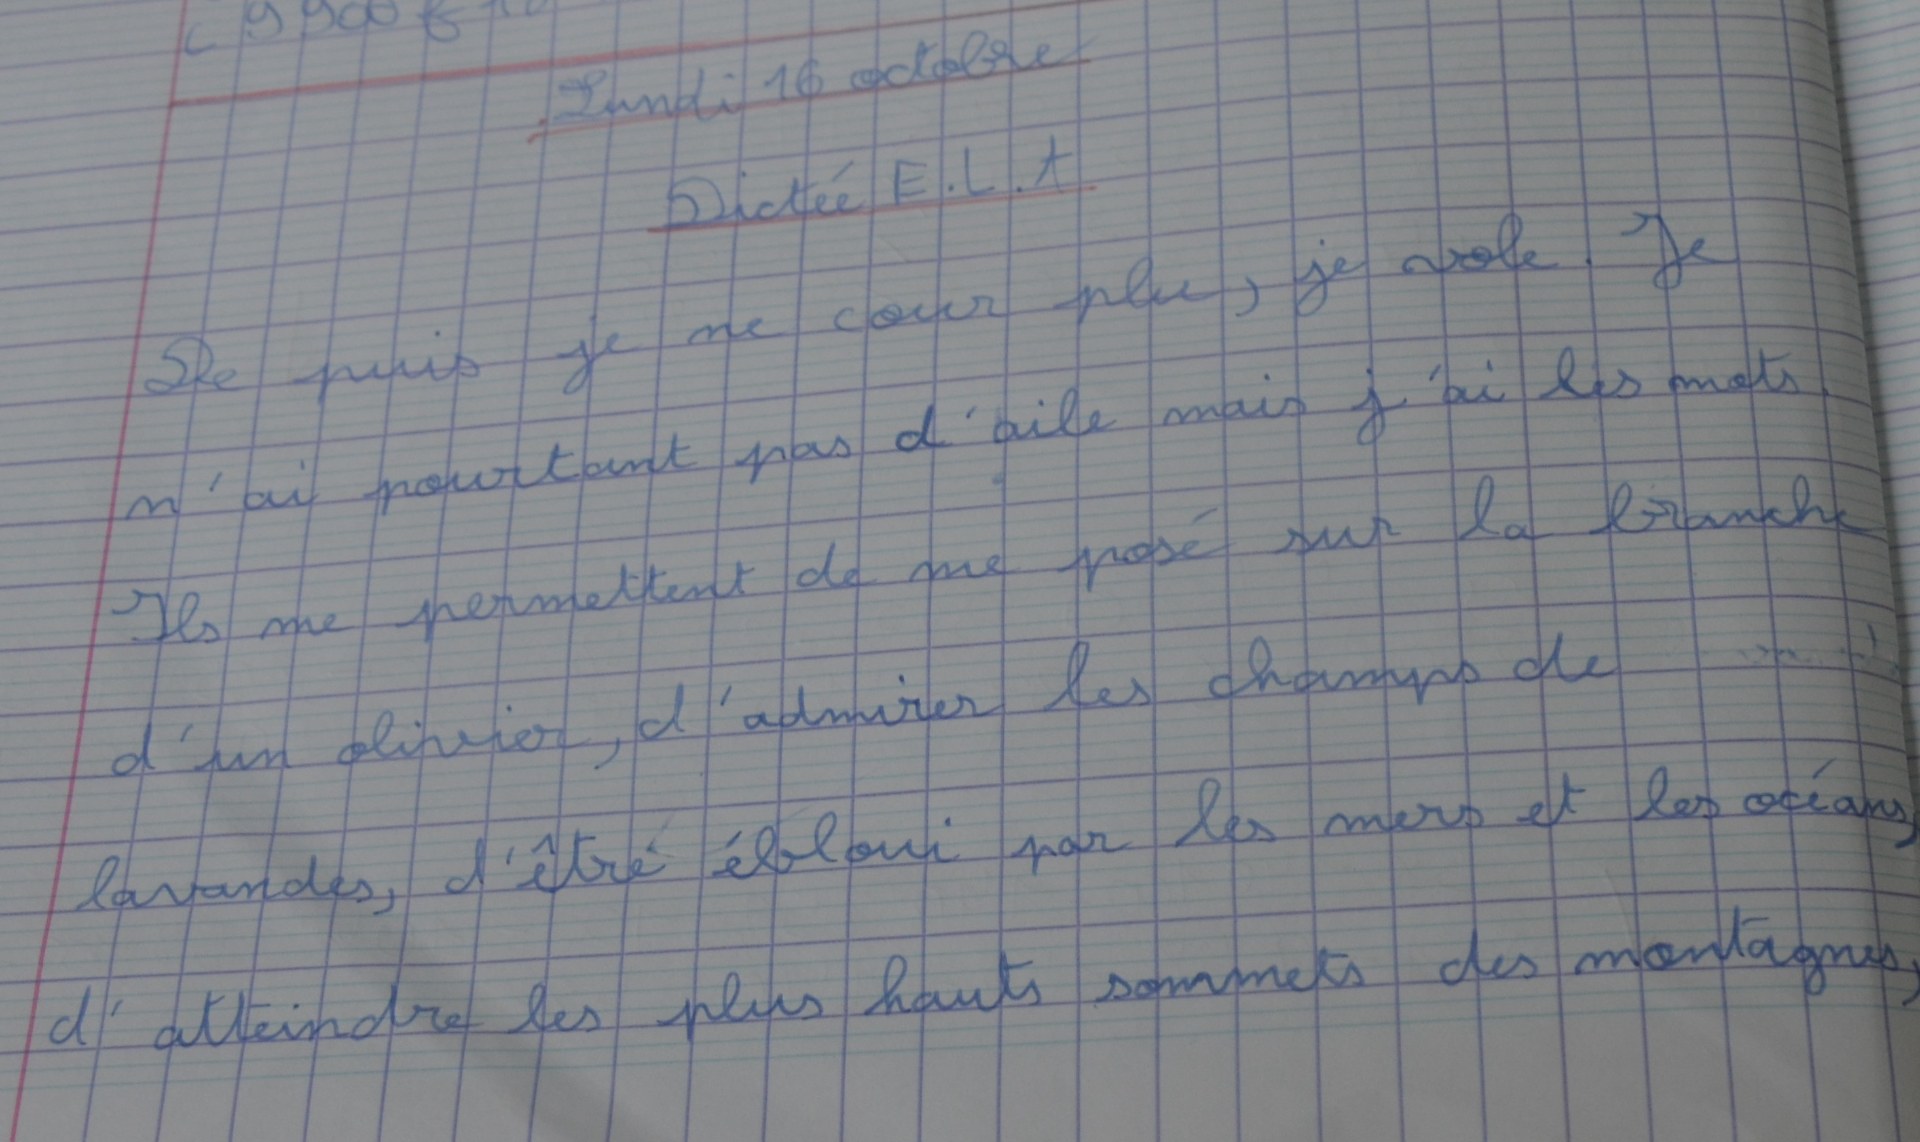 Lundi 16 octobre
Dictée E.L.A
De puis je ne cour plu, je vole. Je
n'ai pourtant pas d'aile mais j'ai les mots.
Ils me permettent de me posé sur la branche
d'un olivier, d'admirer les champs de
lavandes, d'être ébloui par les mers et les océans,
d'atteindre les plus hauts sommets des montagnes,